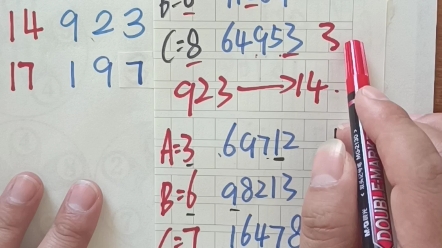 14 923
17 197
C=8 64953 3
923→14.
A=3 69712
B=6 98213
C=7 16478
DOUBLE MARK